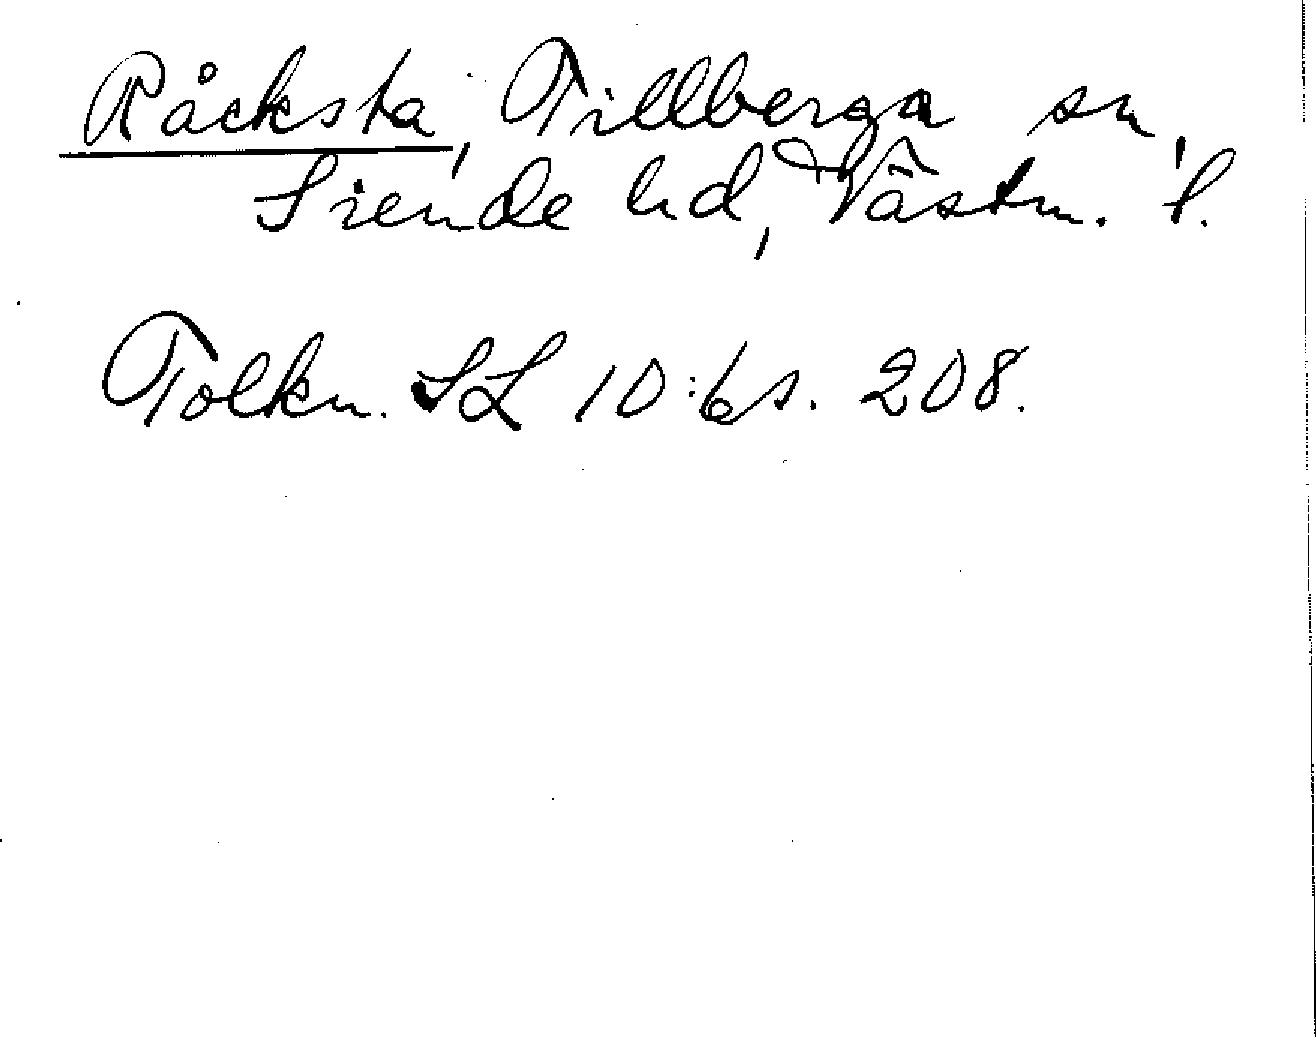 Råcksta, Tillberga sn,
Siende hd, Västm. l.
Tolkn. SL 10:6 s. 208.